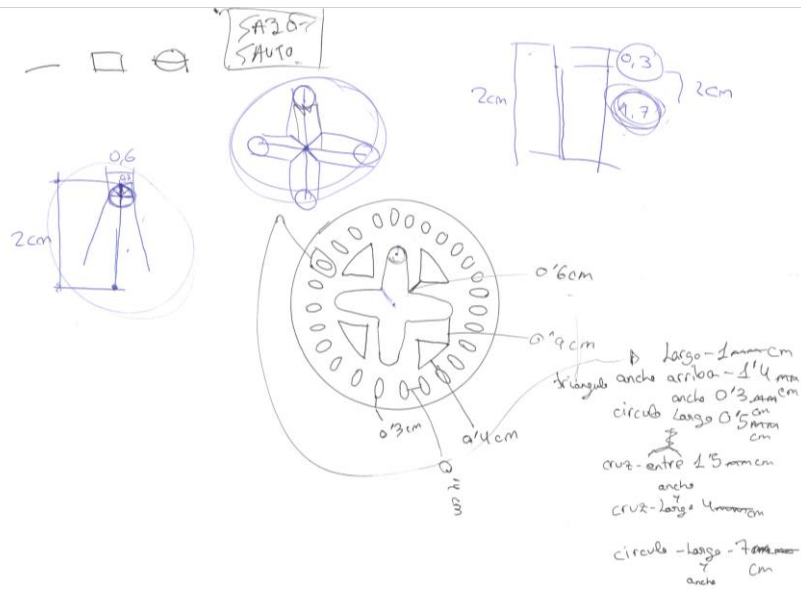 SA267
SAUTO
0,3
2cm
2cm
1,7
0,6
2cm
0'6cm
0'9cm
0'3cm
0'4cm
0'4cm
Largo-1 cm
triángulo ancho arriba-1'4 mm
ancho 0'3 cm
circulo Largo 0'5 cm
cm
cruz-entre 1'5 cm
ancho
y
cruz-Largo 4 cm
circulo-Largo-7
y cm
ancho